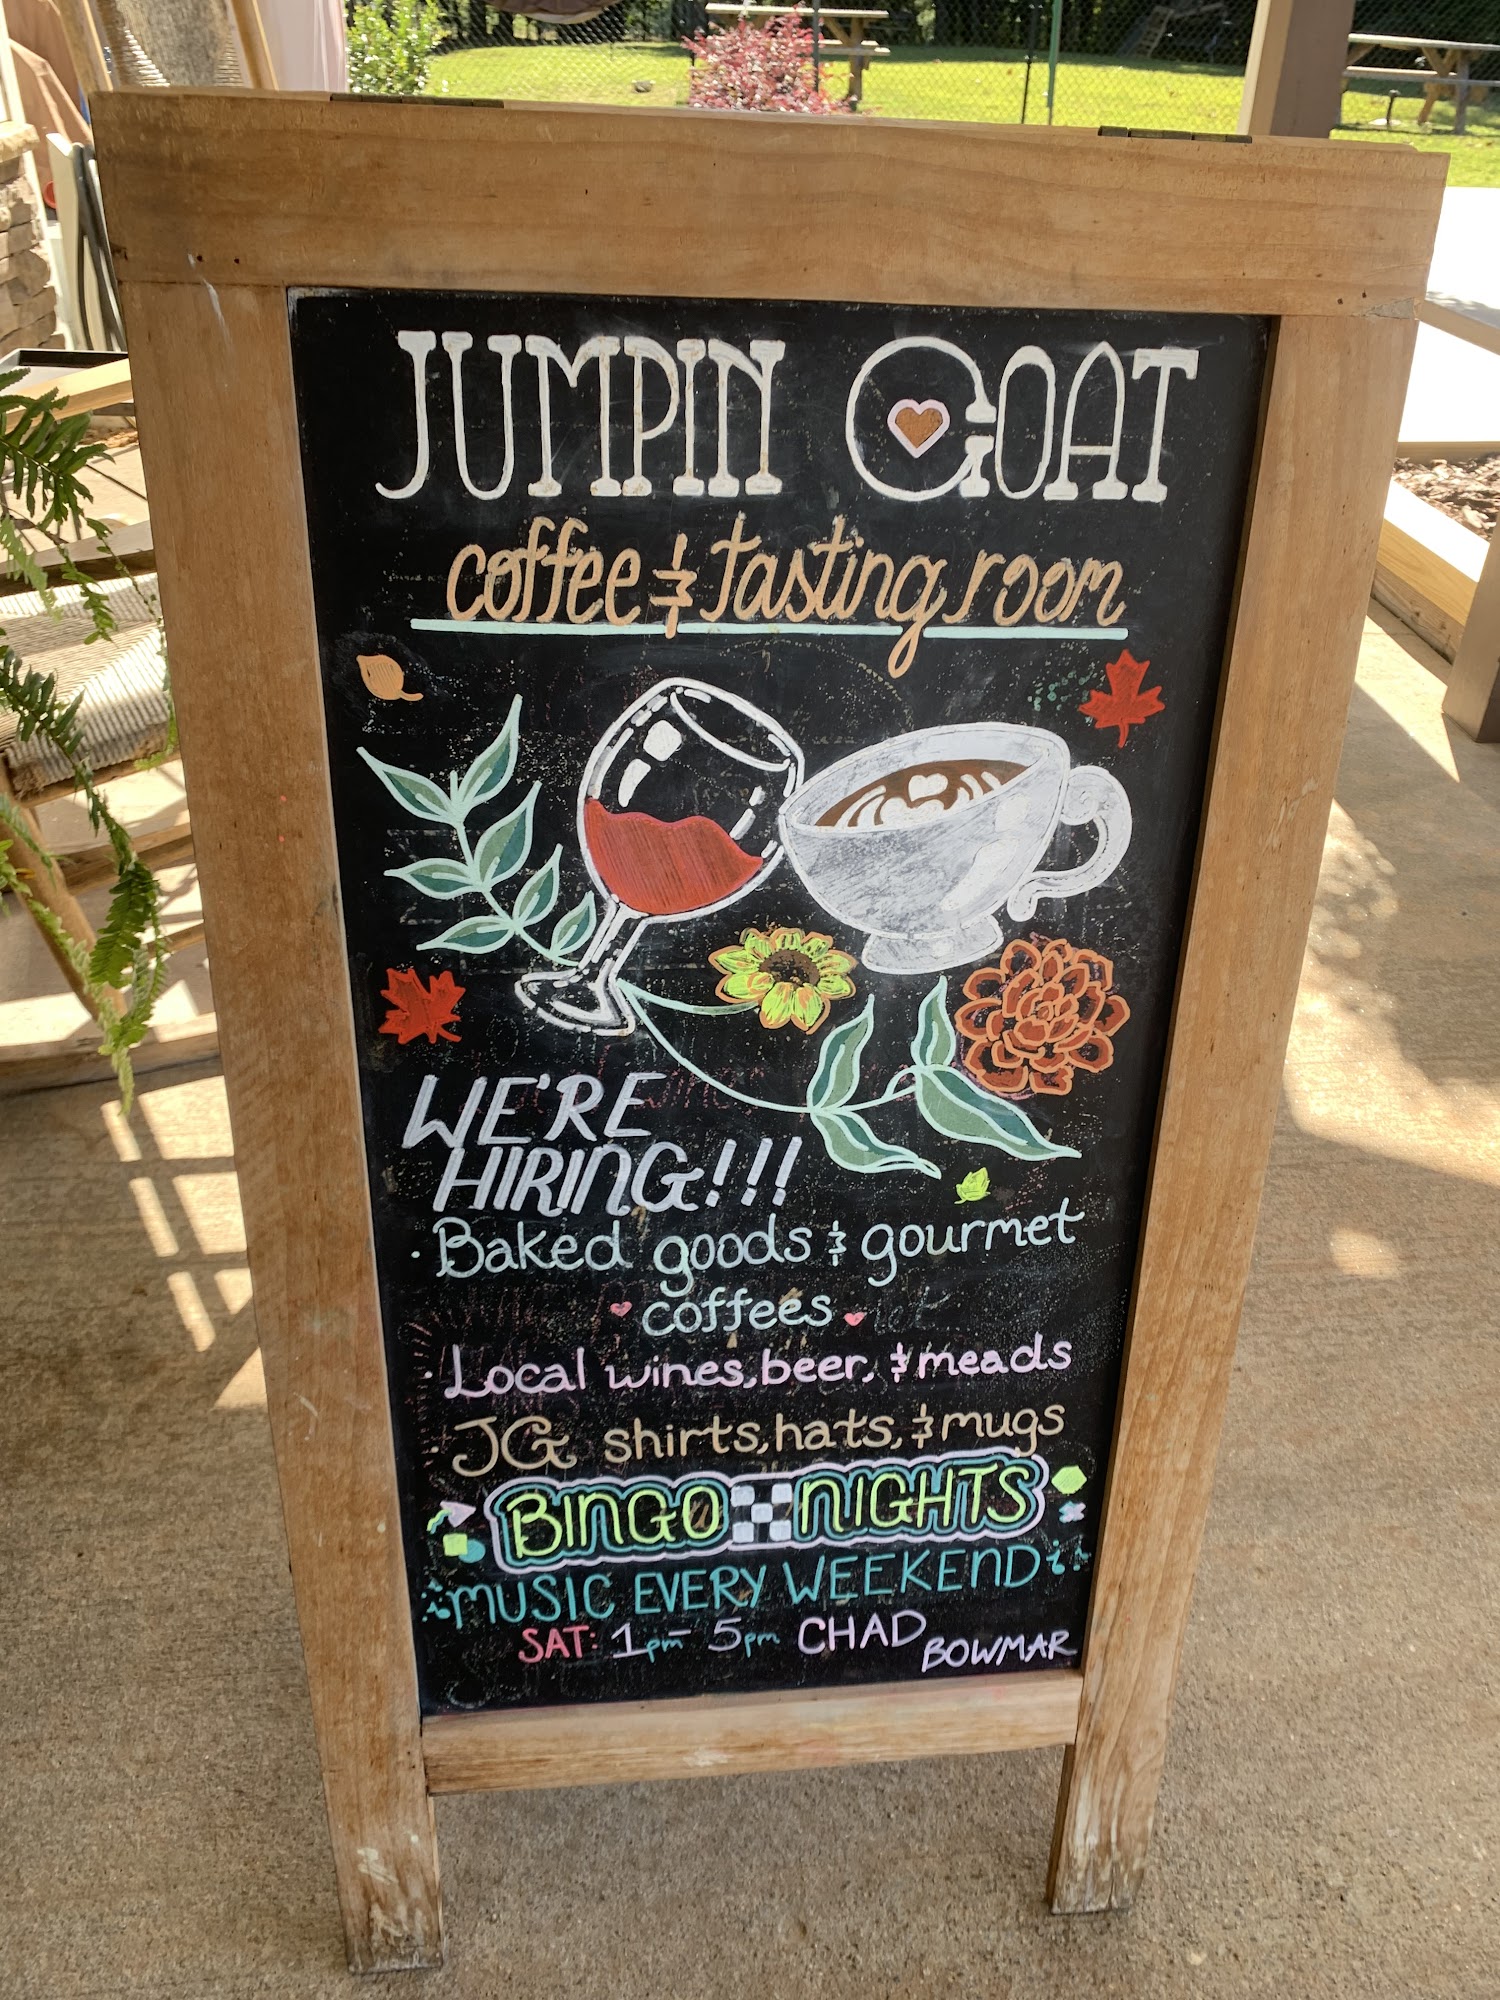 JUMPIN GOAT
coffee & tasting room
WE'RE
HIRING!!!
· Baked goods & gourmet
coffees
· Local wines, beer, & meads
· JG shirts, hats, & mugs
BINGO NIGHTS
MUSIC EVERY WEEKEND
SAT: 1pm - 5pm CHAD BOWMAR